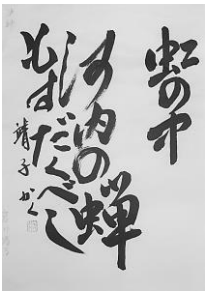 虹の中
河内の蝉
もすだくべし
靖子かく